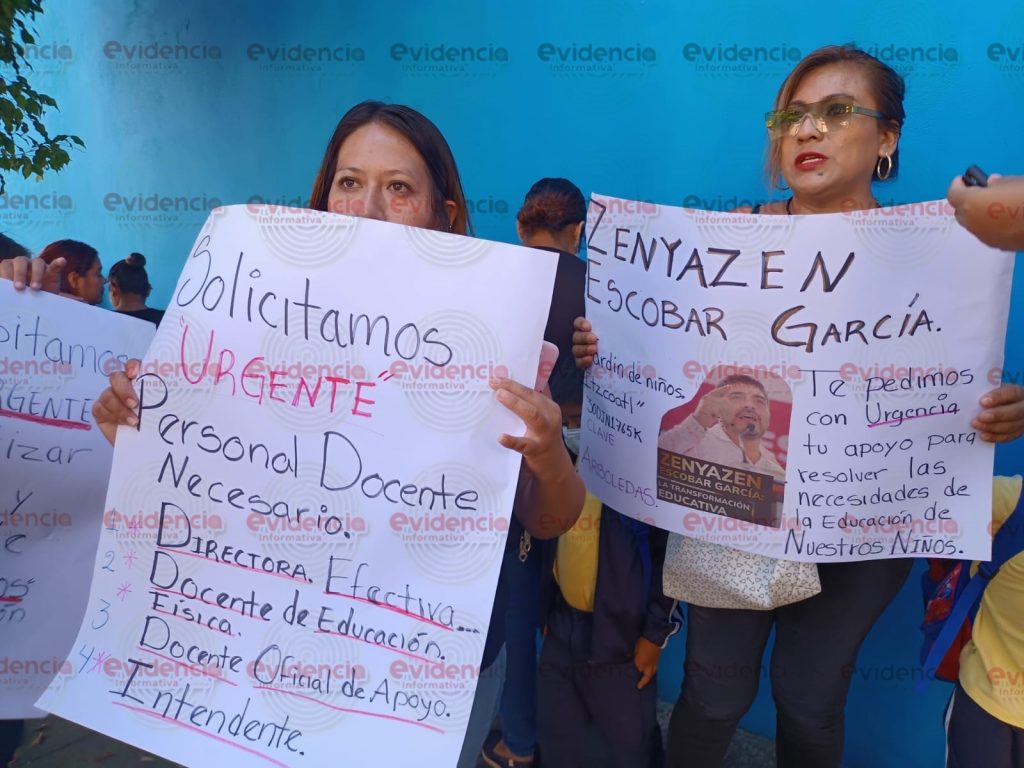 evidencia
Informativa
Solicitamos
"URGENTE"
Personal Docente
Necesario.
1 * DIRECTORA. Efectiva...
2 * Docente de Educación.
Física.
3 Docente Oficial de Apoyo.
4 * Intendente.
ZENYAZEN
ESCOBAR GARCÍA.
Jardín de niños.
Itzcoatl"
30DJN1765K
CLAVE
ARBOLEDAS.
ZENYAZEN
ESCOBAR GARCÍA:
LA TRANSFORMACIÓN
EDUCATIVA
Te pedimos
con Urgencia
tu apoyo para
resolver las
necesidades de
la Educación de
Nuestros NIÑOS.